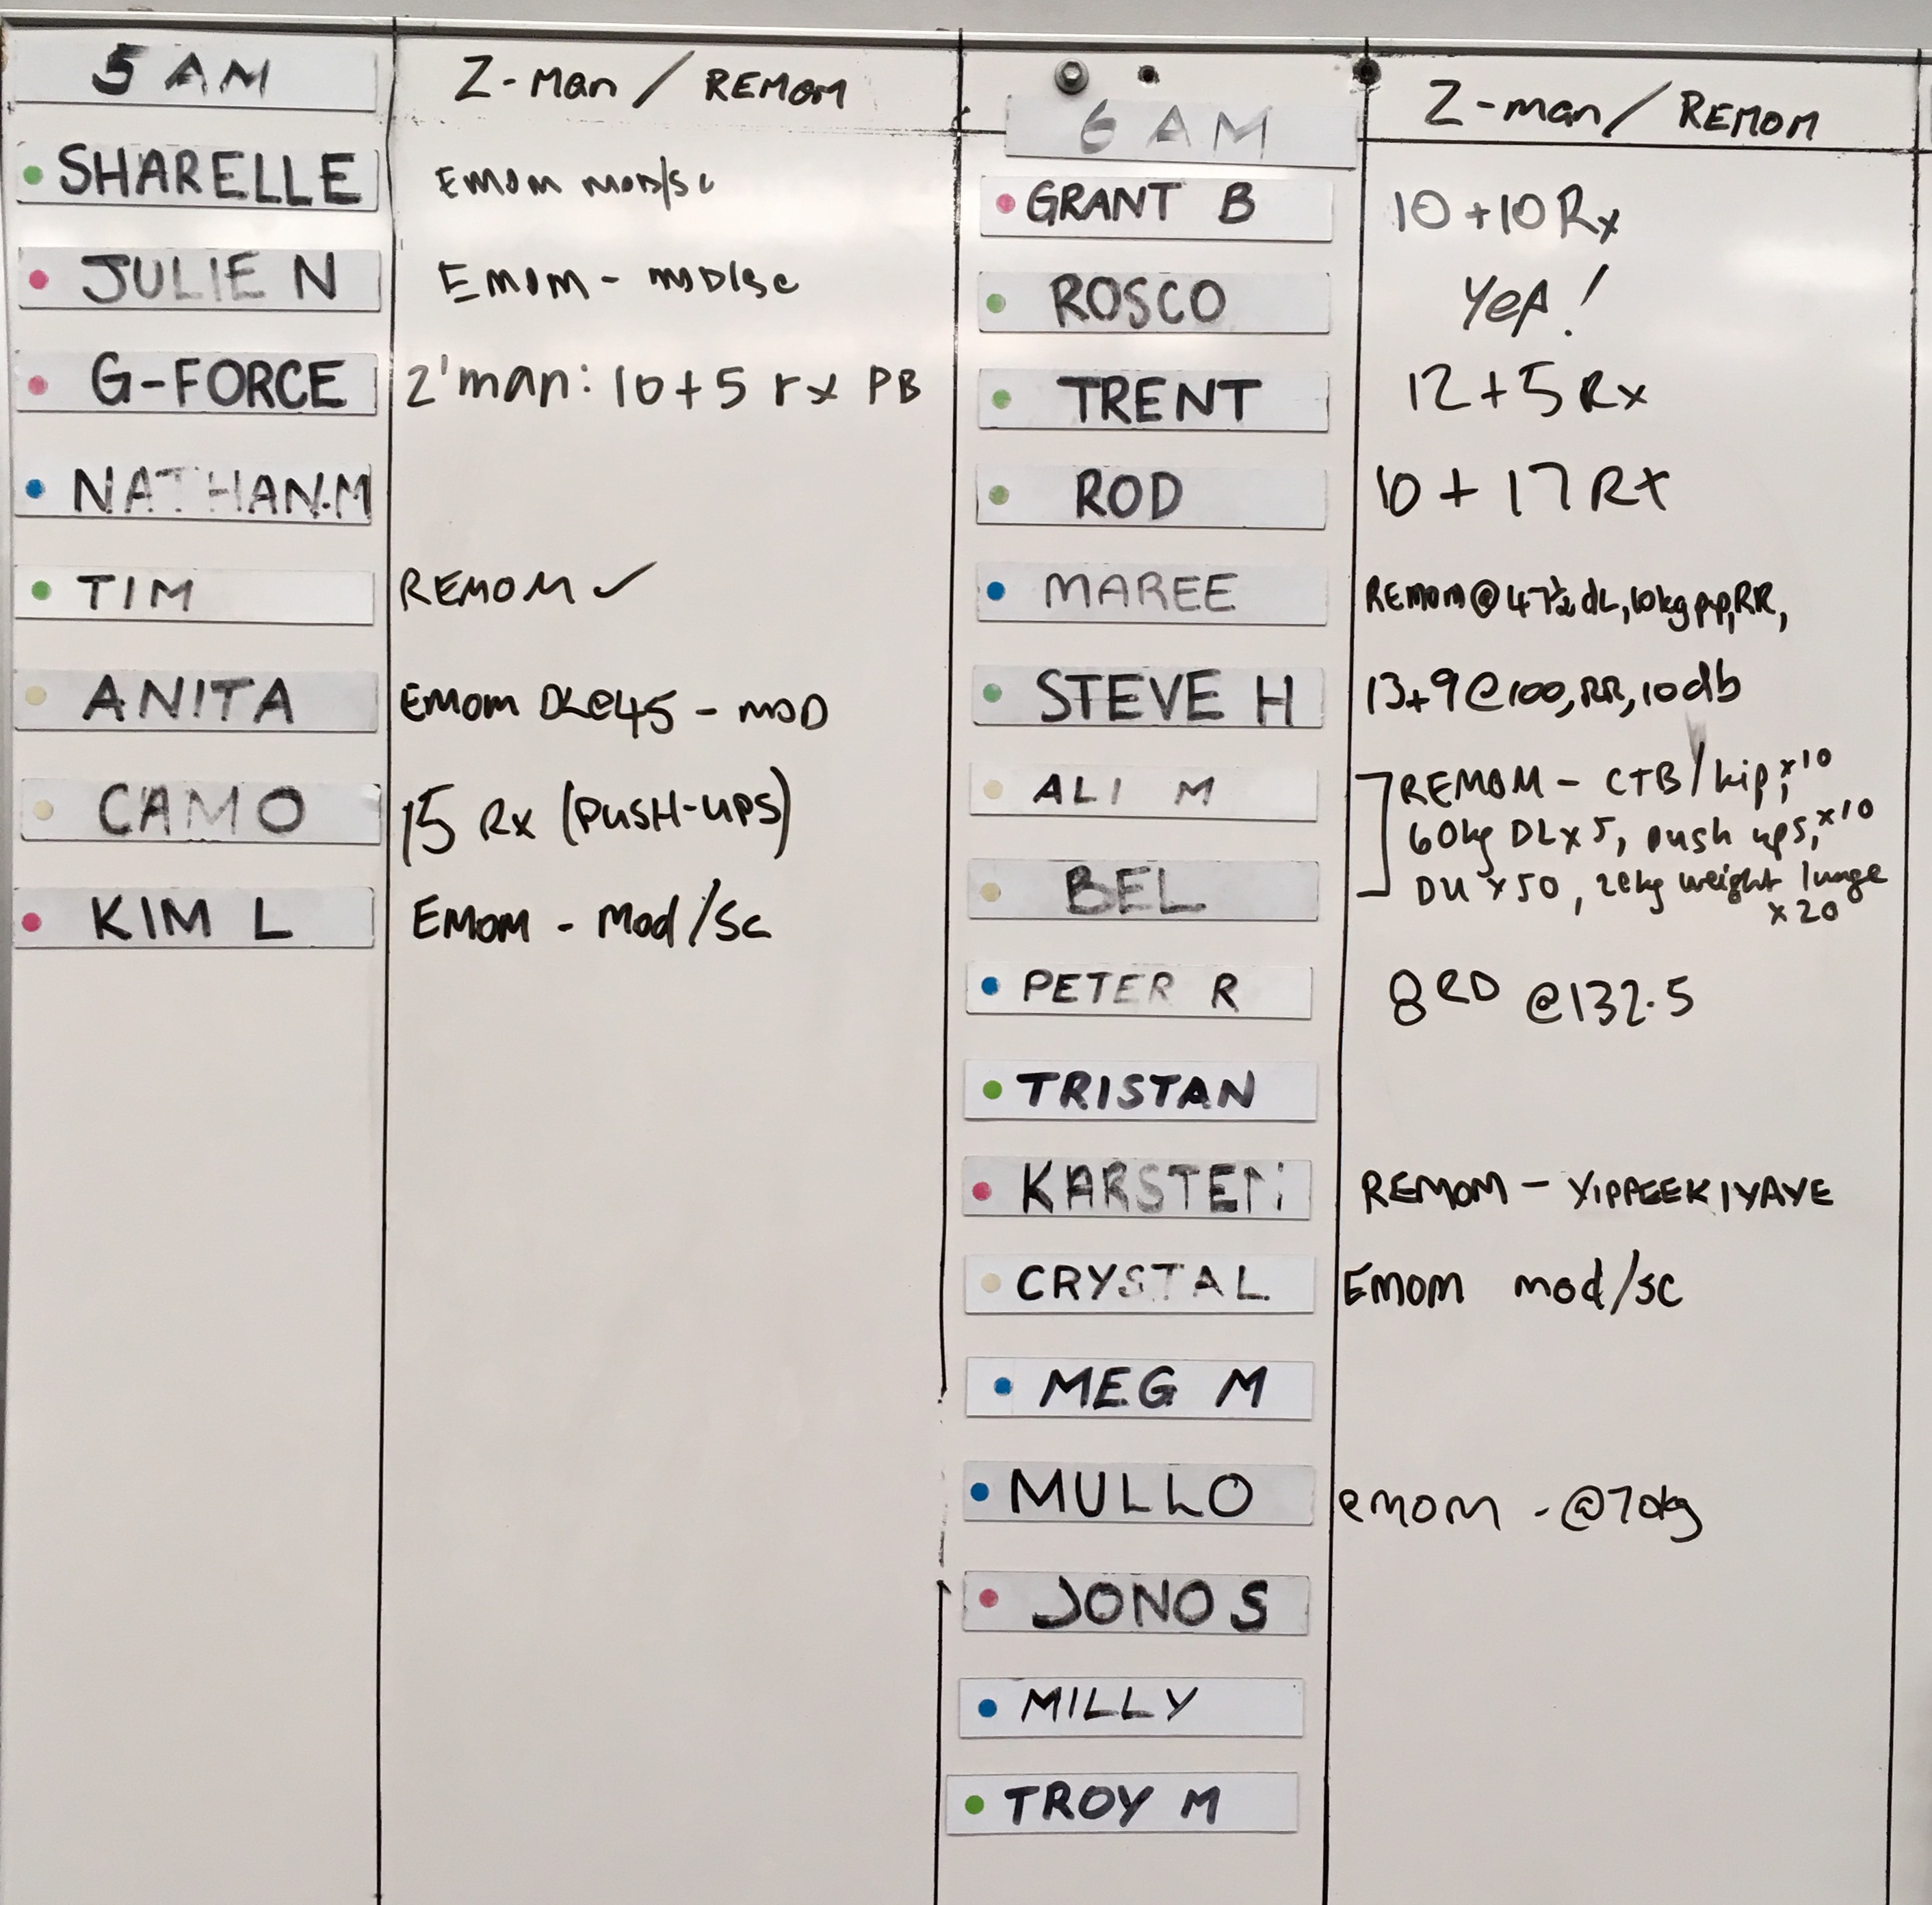 5 AM Z-Man / REMOM
SHARELLE EMOM MOD/SC
JULIE N EMOM - MOD/SC
G-FORCE Z'man: 10+5 rx PB
NATHAN.M
TIM REMOM ✓
ANITA EMOM DL@45 - MOD
CAMO 15 Rx (PUSH-UPS)
KIM L EMOM - Mod/Sc
6 AM Z-man / REMOM
GRANT B 10+10 Rx
ROSCO Yep!
TRENT 12+5 Rx
ROD 10 + 17 RX
MAREE REMOM @ 47½ dL, 10kg pp, RR,
STEVE H 13+9 @ 100, RR, 10db
ALI M REMOM - CTB/kip, x10
60kg DL x 5, push ups, x10
BEL DU x 50, 20kg weight lunge
x 20
PETER R 8 RD @ 132.5
TRISTAN
KARSTEN REMOM - YIPPEEKIYAYE
CRYSTAL EMOM mod/sc
MEG M
MULLO emom - @70kg
JONO S
MILLY
TROY M